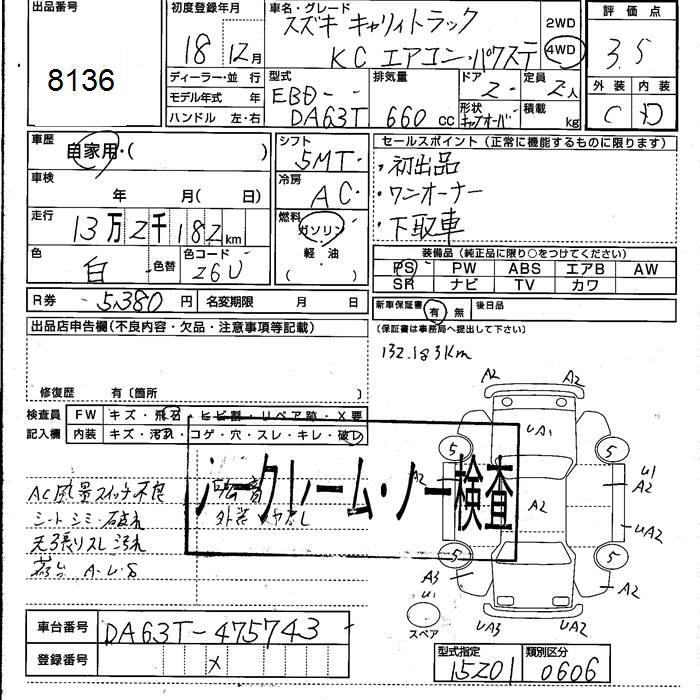 出品番号
8136
初度登録年月
18 12月
車名・グレード
スズキ キャリィトラック
KC エアコン・パワステ
2WD
4WD
評価点
3.5
外装 内装
C D
ディーラー・並行
モデル年式 年
ハンドル 左・右
型式
EBD-
DA63T
排気量
660 cc
ドア
2
定員
2人
形状
キャブオーバ
積載
kg
車歴
自家用・( )
車検
年 月( 日)
走行
13万2千182km
色
白
色替
色コード
26U
シフト
5MT
冷房
AC
燃料
ガソリン
軽・油
( )
セールスポイント(正常に機能するものに限ります)
・初出品
・ワンオーナー
・下取車
装備品(純正品に限り○をつけてください)
PS PW ABS エアB AW
SR ナビ TV カワ
R券 5,380円 名変期限 月 日
新車保証書 有 無 後日品
(保証書は事務局へ提出して下さい)
132.183Km
出品店申告欄(不良内容・欠品・注意事項等記載)
修復歴 有〔箇所 〕
検査員
記入欄
FW キズ・飛石・ヒビ割・リペア跡・X要
内装 キズ・汚れ・コゲ・穴・スレ・キレ・破レ
ノークレーム・ノー検査
AC風量スイッチ不良
シートシミ・破れ
天張りスレ汚れ
荷台 A・U・S
A2 A2
UA1
5 5
A2
U1
A2
A2
UA2
5 5
A3
U1
A2
UA3 UA2
スペア
車台番号 DA63T-475743
登録番号 X
型式指定 類別区分
15201 0606